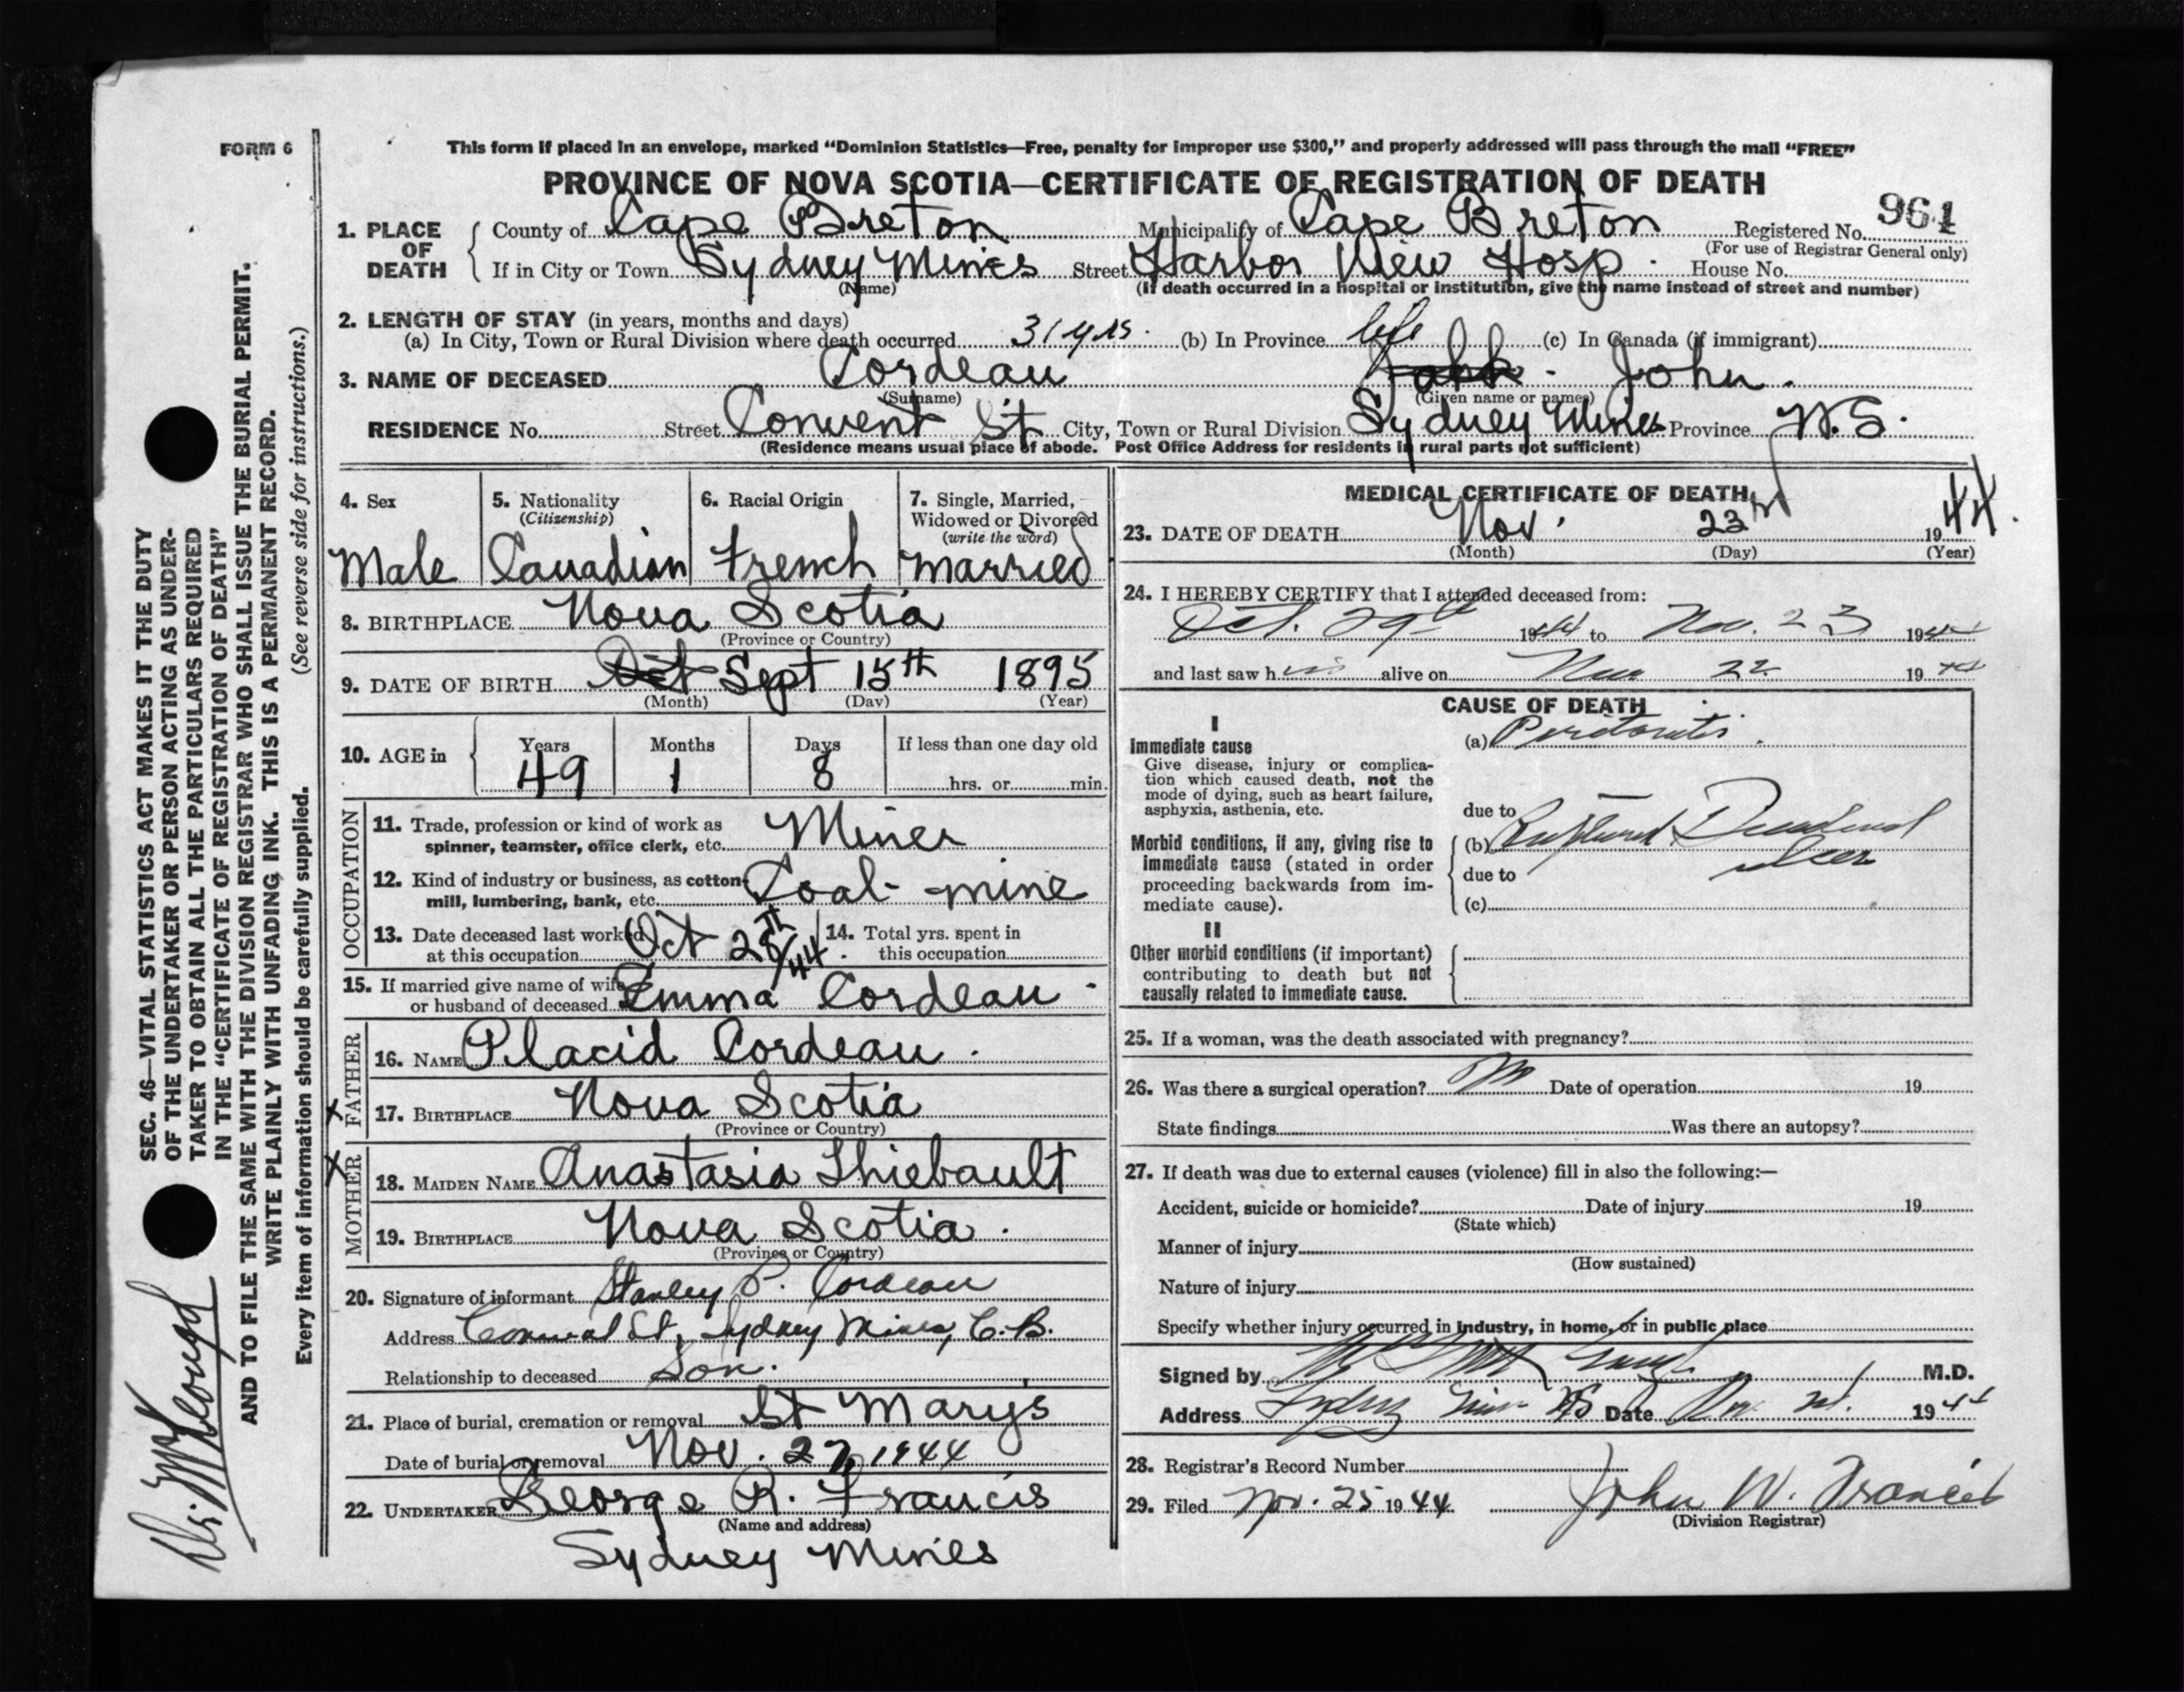 FORM 6
This form if placed in an envelope, marked "Dominion Statistics—Free, penalty for improper use $300," and properly addressed will pass through the mail "FREE"
PROVINCE OF NOVA SCOTIA—CERTIFICATE OF REGISTRATION OF DEATH
964
1. PLACE OF DEATH County of Cape Breton Municipality of Cape Breton Registered No.
(For use of Registrar General only)
If in City or Town Sydney Mines Street Harbor View Hosp. House No.
(Name) (If death occurred in a hospital or institution, give the name instead of street and number)
2. LENGTH OF STAY (in years, months and days)
(a) In City, Town or Rural Division where death occurred 31 yrs. (b) In Province life (c) In Canada (if immigrant)
3. NAME OF DECEASED Cordeau John.
(Surname) (Given name or names)
RESIDENCE No. Street Convent St City, Town or Rural Division Sydney Mines Province N.S.
(Residence means usual place of abode. Post Office Address for residents in rural parts not sufficient)
4. Sex
Male
5. Nationality
(Citizenship)
Canadian
6. Racial Origin
French
7. Single, Married,
Widowed or Divorced
(write the word)
married
8. BIRTHPLACE Nova Scotia
(Province or Country)
9. DATE OF BIRTH Oct Sept 15th 1895
(Month) (Day) (Year)
10. AGE in Years Months Days If less than one day old
49 1 8 hrs. or min.
OCCUPATION
11. Trade, profession or kind of work as
spinner, teamster, office clerk, etc. Miner
12. Kind of industry or business, as cotton-
mill, lumbering, bank, etc. Coal-mine
13. Date deceased last worked
at this occupation Oct 28th/44.
14. Total yrs. spent in
this occupation
15. If married give name of wife
or husband of deceased Emma Cordeau -
FATHER
16. NAME Placid Cordeau.
17. BIRTHPLACE Nova Scotia
(Province or Country)
MOTHER
18. MAIDEN NAME Anastasia Thiebault
19. BIRTHPLACE Nova Scotia.
(Province or Country)
20. Signature of informant Stanley P. Cordeau
Address Convent St, Sydney Mines, C.B.
Relationship to deceased Son.
21. Place of burial, cremation or removal St Mary's
Date of burial or removal Nov. 27, 1944
22. UNDERTAKER George R. Francis
(Name and address)
Sydney Mines
MEDICAL CERTIFICATE OF DEATH
23. DATE OF DEATH Nov. 23rd 1944.
(Month) (Day) (Year)
24. I HEREBY CERTIFY that I attended deceased from:
Oct. 29th 1944 to Nov. 23 1944
and last saw him alive on Nov 22 1944
CAUSE OF DEATH
I
Immediate cause
Give disease, injury or complica-
tion which caused death, not the
mode of dying, such as heart failure,
asphyxia, asthenia, etc.
(a) Peritonitis.
due to
Morbid conditions, if any, giving rise to
immediate cause (stated in order
proceeding backwards from im-
mediate cause).
(b) Ruptured Duodenal
ulcer
due to
(c)
II
Other morbid conditions (if important)
contributing to death but not
causally related to immediate cause.
25. If a woman, was the death associated with pregnancy?
26. Was there a surgical operation? No Date of operation 19
State findings Was there an autopsy?
27. If death was due to external causes (violence) fill in also the following:—
Accident, suicide or homicide? Date of injury 19
(State which)
Manner of injury
(How sustained)
Nature of injury
Specify whether injury occurred in industry, in home, or in public place
Signed by M.D.
Address Sydney Mines NS Date Nov. 1944
28. Registrar's Record Number
29. Filed Nov. 25 1944 John W. Francis
(Division Registrar)
SEC. 46—VITAL STATISTICS ACT MAKES IT THE DUTY
OF THE UNDERTAKER OR PERSON ACTING AS UNDER-
TAKER TO OBTAIN ALL THE PARTICULARS REQUIRED
IN THE "CERTIFICATE OF REGISTRATION OF DEATH"
AND TO FILE THE SAME WITH THE DIVISION REGISTRAR WHO SHALL ISSUE THE BURIAL PERMIT.
WRITE PLAINLY WITH UNFADING INK. THIS IS A PERMANENT RECORD.
Every item of information should be carefully supplied. (See reverse side for instructions.)
McKeough